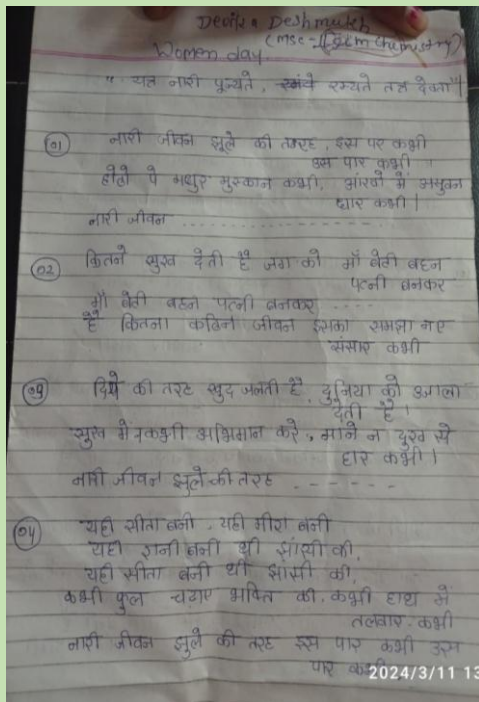 Devika Deshmukh
(MSc - I sem chemistry)
Women day.
"यत्र नारी पूज्यते, रमंते रम्यते तत्र देवता"।
01 नारी जीवन झूले की तरह, इस पर कभी
उस पार कभी ।
होठो पे मधुर मुस्कान कभी, आंखो में असुवन
धार कभी ।
नारी जीवन ....................
02 कितने सुख देती है जग को माँ बेटी बहन
पत्नी बनकर
माँ बेटी बहन पत्नी बनकर ....
है कितना कठिन जीवन इसका समझा न ए
संसार कभी
03 दिये की तरह खुद जलती है, दुनिया को उजाला
देती है ।
सुख में न कभी अभिमान करे, माने न दुख से
हार कभी ।
नारी जीवन झुले की तरह - - - - - -
04 यही सीता बनी, यही मीरा बनी
यही रानी बनी थी झांसी की,
यही सीता बनी थी झांसी की,
कभी फुल चढाए भक्ति के, कभी हाथ में
तलवार कभी
नारी जीवन झुले की तरह इस पार कभी उस
पार कभी
2024/3/11 13